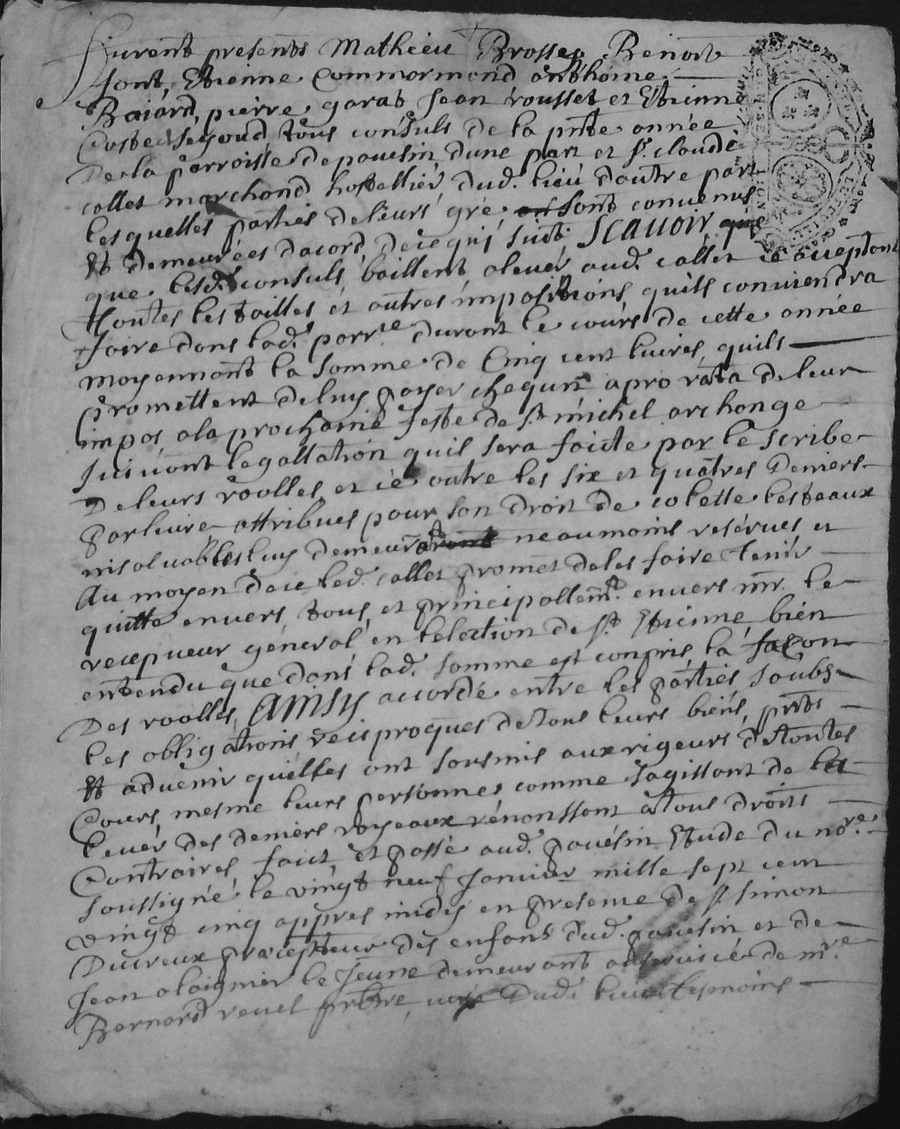 Furent presents Mathieu Brosse, Benoit
font, Etienne Commormond anthoine
Baiard, pierre garat Jean rousset et Etienne
Coste Seyoud tous consuls de la pnte année
De la parroisse de pauesin dune part et sr. claude
collet marchand hostellier dud. lieu dautre part
Lesquelles parties de leurs gré sont convenus
Et demeurées dacord de ce qui suit Scauoir que
que lesd. consuls baillent a leuer aud. collet ce aceptant
toutes les tailles et autres impositions quils conviendra
faire dans lad. parr.e durant le cours de cette année
moyennant la somme de Cinq cent liures, quils
promettent de luy payer chequn a pro rata de leur
impos a la prochaine feste de st michel archange
suivant legallation quil sera faicte par le scribe
De leurs roolles, et ce outre les six et quatres deniers
par liure attribues pour son droit de colette les taux
nisoluables luy demeur neaumoins reserues et
Au moyen de ce led. collet promet de les faire tenir
quitte envers tous et principallemt. envers mr. le
recepueur general en lelection de st. Etienne bien
entendu que dans lad. somme est conpris la facon
Des roolles, Ainsy acordé entre les parties soubs
Les obligations reciproques de tous leurs biens, pnts
Et aduenir quelles ont sousmis aux rigeurs de toutes
Cours mesme leurs personnes comme sagissant de la
leuée des deniers royeaux renonssant a tous droits
Contraires, faict et passé aud. pauésin Etude du no.re
soussigné le vingt neuf Januier mille sept cent
vingt cinq appres midy en presence de sr simon
Ducreux precepteur des enfans dud. pauesin et de
Jean alaignier le Jeune demeurant au seruice de m.re
Bernard reuel prbre, dud. lieu tesmoins